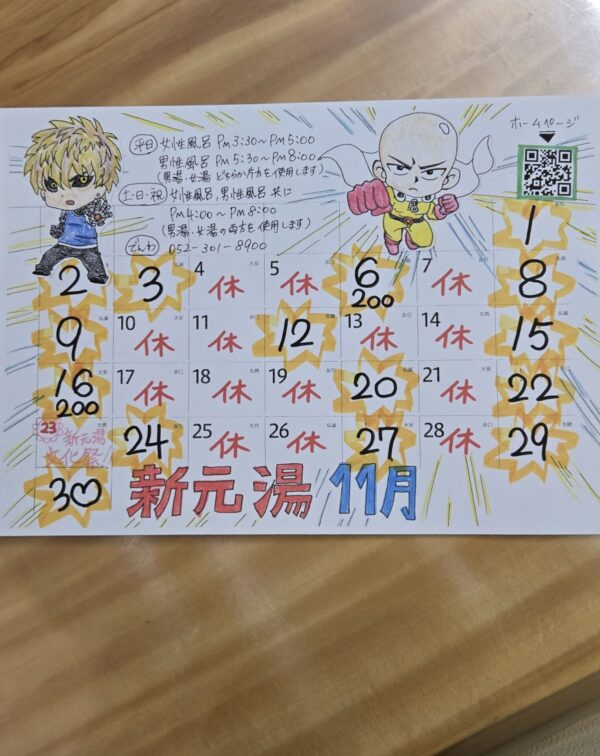 ホームページ
平日 女性風呂 Pm3:30~Pm5:00
男性風呂 Pm5:30~Pm8:00
(男湯・女湯どちらか片方を使用します)
土・日・祝 女性風呂、男性風呂 共に
Pm4:00~Pm8:00
(男湯・女湯の両方を使用します)
でんわ 052-301-8900
1
2 3 4 休 5 休 6 200 7 休 8
9 10 休 11 休 12 13 休 14 休 15
16 200 17 休 18 休 19 休 20 21 休 22
23 新元湯文化祭! 24 25 休 26 休 27 28 休 29
30♡
新元湯 11月